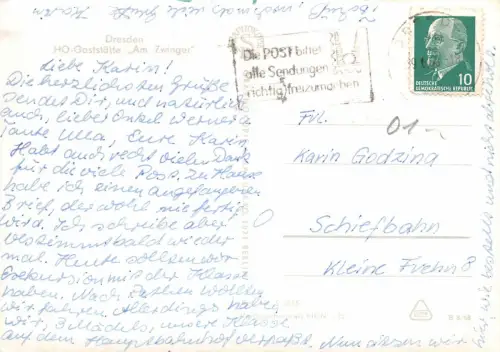 Dresden
HO-Gaststätte „Am Zwinger"
Liebe Karin!
Die herzlichsten Grüße
sendet Dir, und natürlich
auch, lieber Onkel Werner u.
Tante Ulla, Eure Karin
Habt auch recht vielen Dank
für die viele Post. Zu Hause
habe ich einen angefangenen
Brief, der wohl nie fertig
wird. Ich schreibe aber
bestimmt bald wieder
mal. Heute sollten wir
Exkursion mit der Klasse
haben. Nach Zeithen wollten
wir fahren. Allerdings haben
wir, 3 Mädels, unsere Klasse
auf dem Hauptbahnhof verpaßt. Nun sitzen wir
hier, wie bestellt und nicht abgeholt
Die POST bittet
alle Sendungen
richtig freizumachen
10
DEUTSCHE
DEMOKRATISCHE REPUBLIK
01-
Frl.
Karin Godzina
Schiefbahn
Kleine Frehn 8